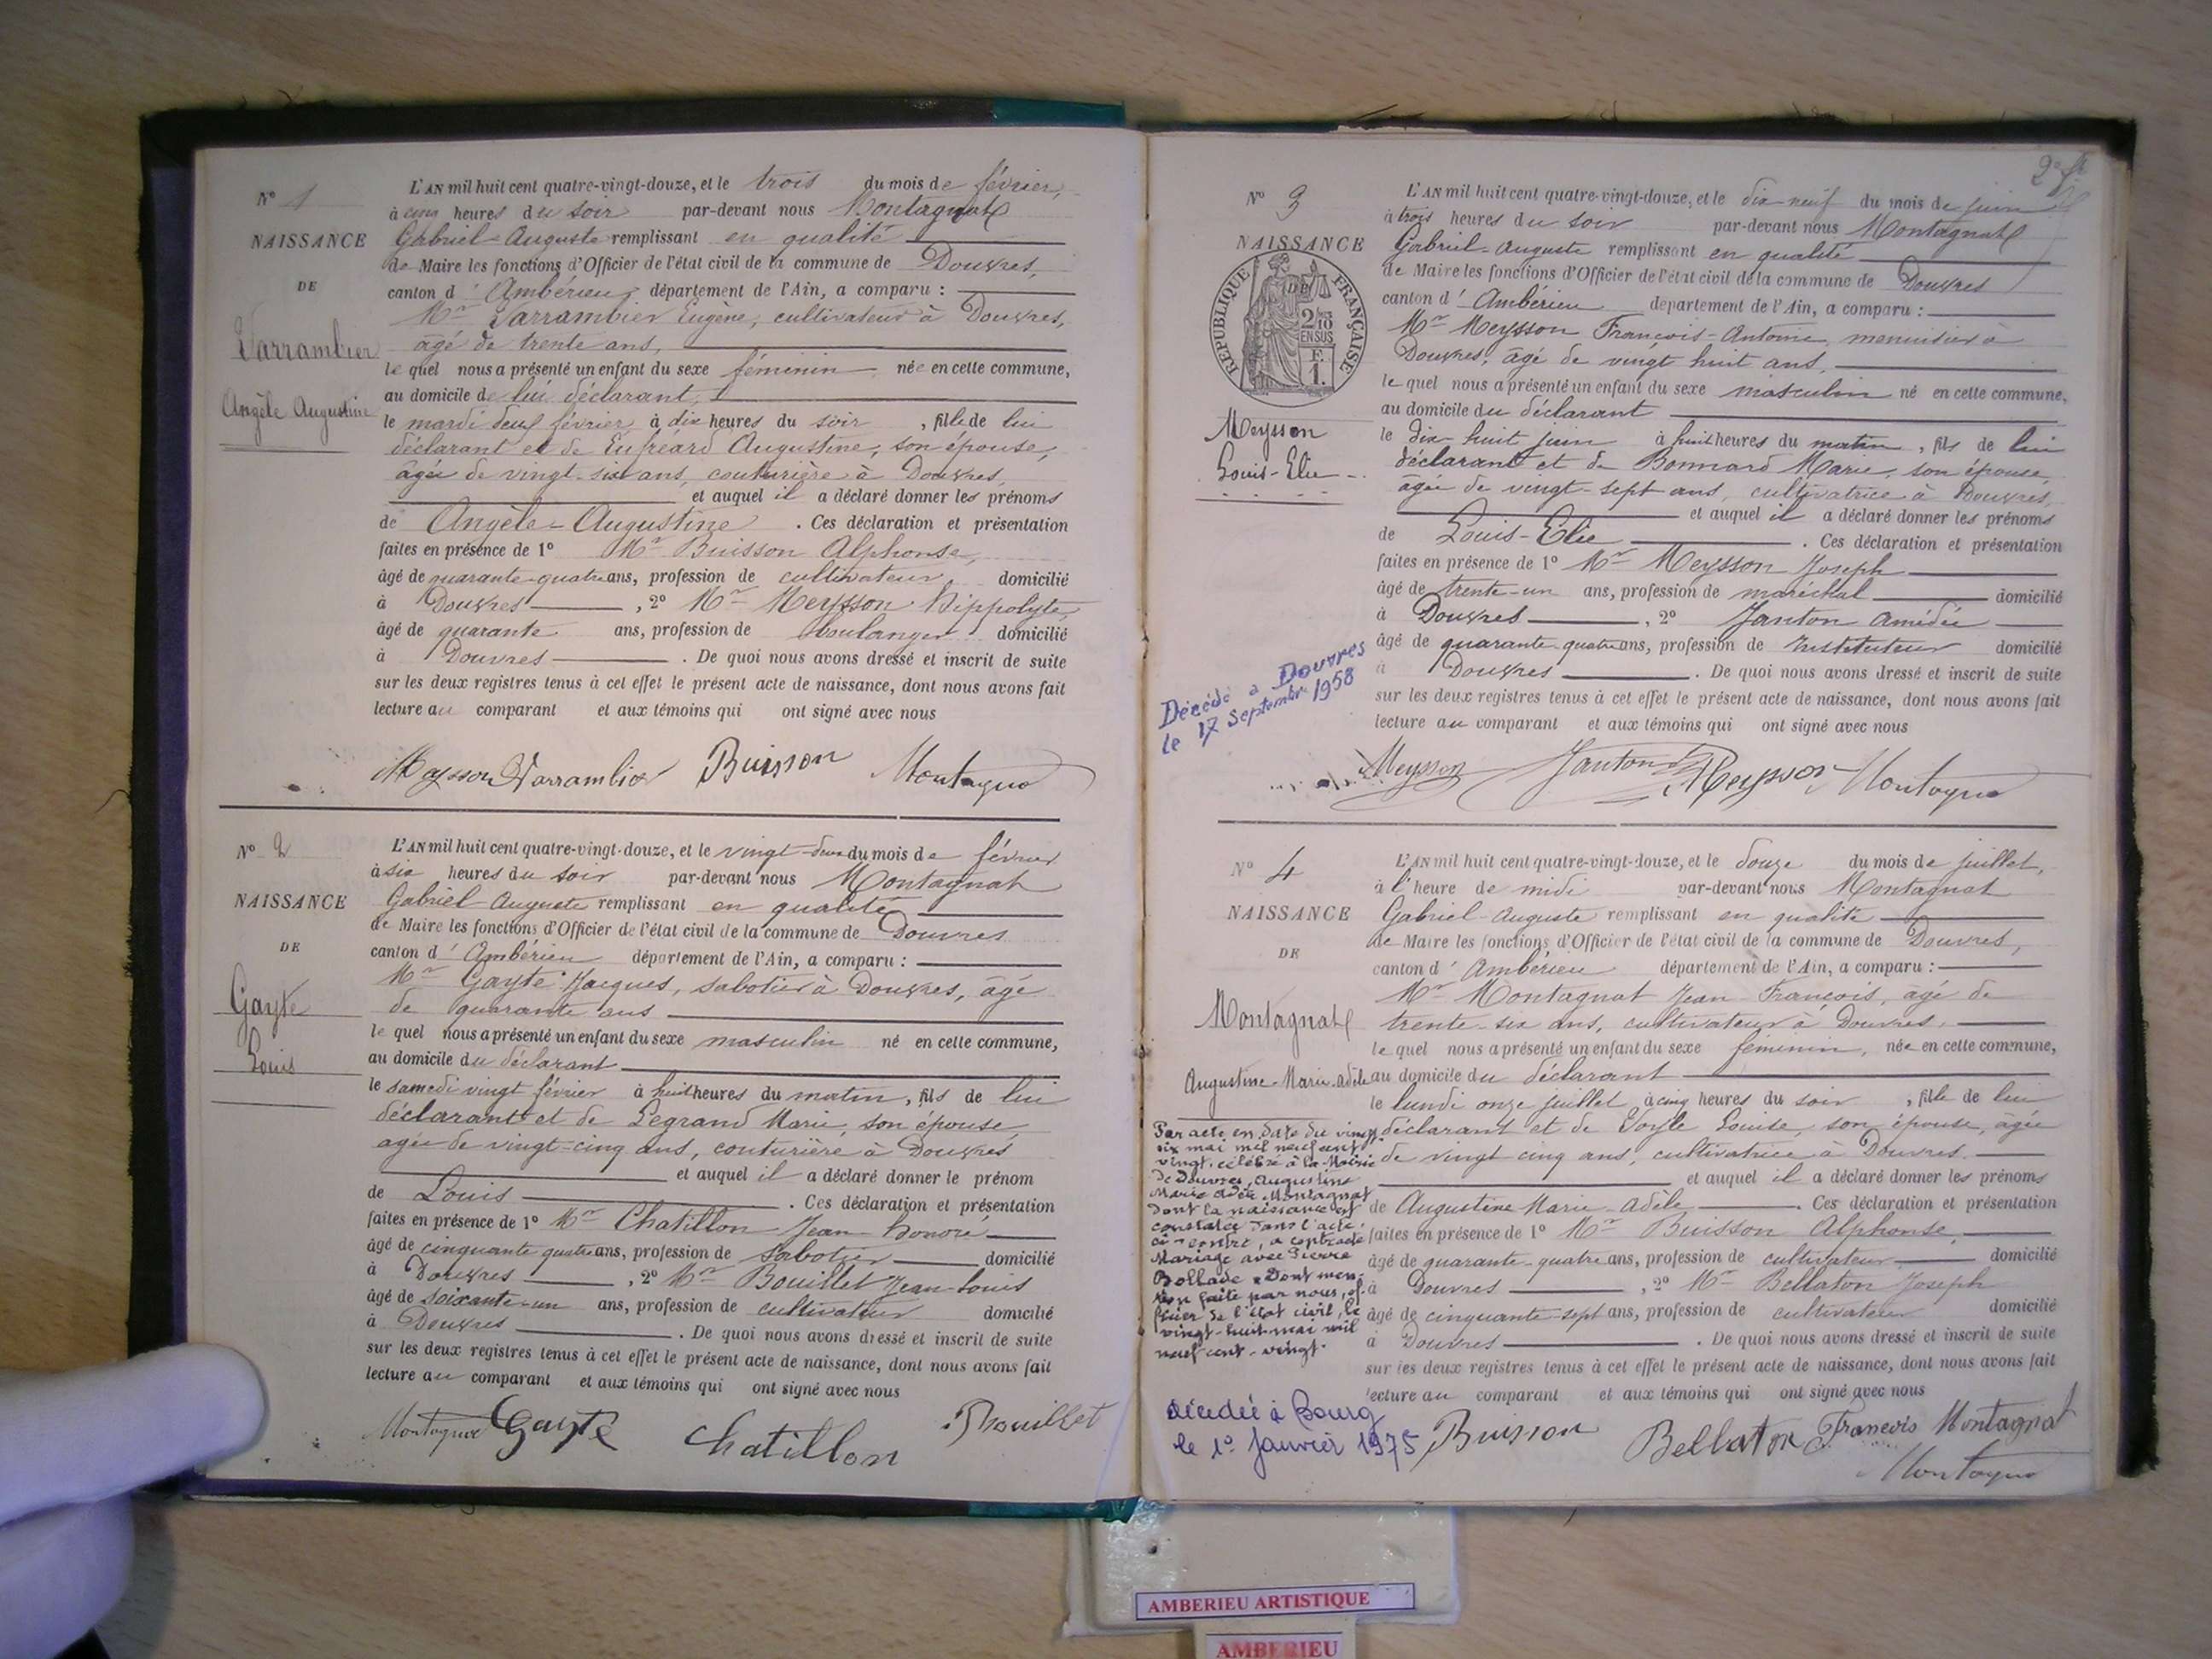 N° 1
NAISSANCE
DE
Varrambier
Angèle Augustine
L'AN mil huit cent quatre-vingt-douze, et le trois du mois de février,
à cinq heures du soir par-devant nous Montagnat
Gabriel-Auguste remplissant en qualité
de Maire les fonctions d'Officier de l'état civil de la commune de Douvres,
canton d'Ambérieu, département de l'Ain, a comparu :
Mr Varrambier Eugène, cultivateur à Douvres,
âgé de trente ans,
le quel nous a présenté un enfant du sexe féminin née en cette commune,
au domicile de lui déclarant,
le mardi deux février à dix heures du soir, fille de lui
déclarant et de Augustine, son épouse,
âgée de vingt-six ans, couturière à Douvres,
et auquel il a déclaré donner les prénoms
de Angèle-Augustine. Ces déclaration et présentation
faites en présence de 1° Mr Buisson Alphonse,
âgé de quarante-quatre ans, profession de cultivateur, domicilié
à Douvres, 2° Mr Meysson Hippolyte,
âgé de quarante ans, profession de boulanger domicilié
à Douvres. De quoi nous avons dressé et inscrit de suite
sur les deux registres tenus à cet effet le présent acte de naissance, dont nous avons fait
lecture au comparant et aux témoins qui ont signé avec nous
Meysson Varrambier Buisson Montagna
N° 2
NAISSANCE
DE
Gayte
Louis
L'AN mil huit cent quatre-vingt-douze, et le vingt-deux du mois de février
à six heures du soir par-devant nous Montagnat
Gabriel-Auguste remplissant en qualité
de Maire les fonctions d'Officier de l'état civil de la commune de Douvres
canton d'Ambérieu département de l'Ain, a comparu :
Mr Gayte Jacques, sabotier à Douvres, âgé
de quarante ans
le quel nous a présenté un enfant du sexe masculin né en cette commune,
au domicile du déclarant
le samedi vingt février à huit heures du matin, fils de lui
déclarant et de Legrand Marie, son épouse,
âgée de vingt-cinq ans, couturière à Douvres
et auquel il a déclaré donner le prénom
de Louis. Ces déclaration et présentation
faites en présence de 1° Mr Chatillon Jean-honoré
âgé de cinquante quatre ans, profession de sabotier domicilié
à Douvres, 2° Mr Bouillet Jean-Louis
âgé de soixante-un ans, profession de cultivateur domicilié
à Douvres. De quoi nous avons dressé et inscrit de suite
sur les deux registres tenus à cet effet le présent acte de naissance, dont nous avons fait
lecture au comparant et aux témoins qui ont signé avec nous
Montagna Gayte Chatillon Bouillet
2e f
N° 3
NAISSANCE
DE
REPUBLIQUE FRANÇAISE
2/10
EN SUS
F.
1.
Meysson
Louis-Elie
Décédé à Douvres
le 17 Septembre 1958
L'AN mil huit cent quatre-vingt-douze, et le dix-neuf du mois de juin
à trois heures du soir par-devant nous Montagnat
Gabriel-Auguste remplissant en qualité
de Maire les fonctions d'Officier de l'état civil de la commune de Douvres
canton d'Ambérieu département de l'Ain, a comparu :
Mr Meysson François-Antoine, menuisier à
Douvres, âgé de vingt huit ans,
le quel nous a présenté un enfant du sexe masculin né en cette commune,
au domicile du déclarant
le dix-huit juin à huit heures du matin, fils de lui
déclarant et de Bonnard Marie, son épouse,
âgée de vingt-sept ans, cultivatrice à Douvres,
et auquel il a déclaré donner les prénoms
de Louis-Elie. Ces déclaration et présentation
faites en présence de 1° Mr Meysson Joseph
âgé de trente-un ans, profession de maréchal domicilié
à Douvres, 2° Janton Amédée
âgé de quarante-quatre ans, profession de Instituteur domicilié
à Douvres. De quoi nous avons dressé et inscrit de suite
sur les deux registres tenus à cet effet le présent acte de naissance, dont nous avons fait
lecture au comparant et aux témoins qui ont signé avec nous
Meysson Janton Meysson Montagna
N° 4
NAISSANCE
DE
Montagnat
Augustine-Marie-Adèle
Par acte en date du vingt
six mai mil neuf cent
vingt, célébré à la Mairie
de Douvres, Augustine
Marie Adèle Montagnat
dont la naissance est
constatée dans l'acte
ci-contre, a contracté
Mariage avec Pierre
Bollade. Dont men-
tion faite par nous, of-
ficier de l'état civil, le
vingt-huit mai mil
neuf cent-vingt.
décédée à Bourg
le 1° Janvier 1975
L'AN mil huit cent quatre-vingt-douze, et le douze du mois de juillet,
à l'heure de midi par-devant nous Montagnat
Gabriel-Auguste remplissant en qualité
de Maire les fonctions d'Officier de l'état civil de la commune de Douvres,
canton d'Ambérieu département de l'Ain, a comparu :
Mr Montagnat Jean-François, âgé de
trente-six ans, cultivateur à Douvres,
le quel nous a présenté un enfant du sexe féminin, née en cette commune,
au domicile du déclarant
le lundi onze juillet à cinq heures du soir, fille de lui
déclarant et de Louise, son épouse, âgée
de vingt cinq ans, cultivatrice à Douvres.
et auquel il a déclaré donner les prénoms
de Augustine Marie-Adèle. Ces déclaration et présentation
faites en présence de 1° Mr Buisson Alphonse,
âgé de quarante-quatre ans, profession de cultivateur domicilié
à Douvres, 2° Mr Bellaton Joseph
âgé de cinquante-sept ans, profession de cultivateur domicilié
à Douvres. De quoi nous avons dressé et inscrit de suite
sur les deux registres tenus à cet effet le présent acte de naissance, dont nous avons fait
lecture au comparant et aux témoins qui ont signé avec nous
Buisson Bellaton François Montagnat
Montagna
AMBERIEU ARTISTIQUE
AMBERIEU